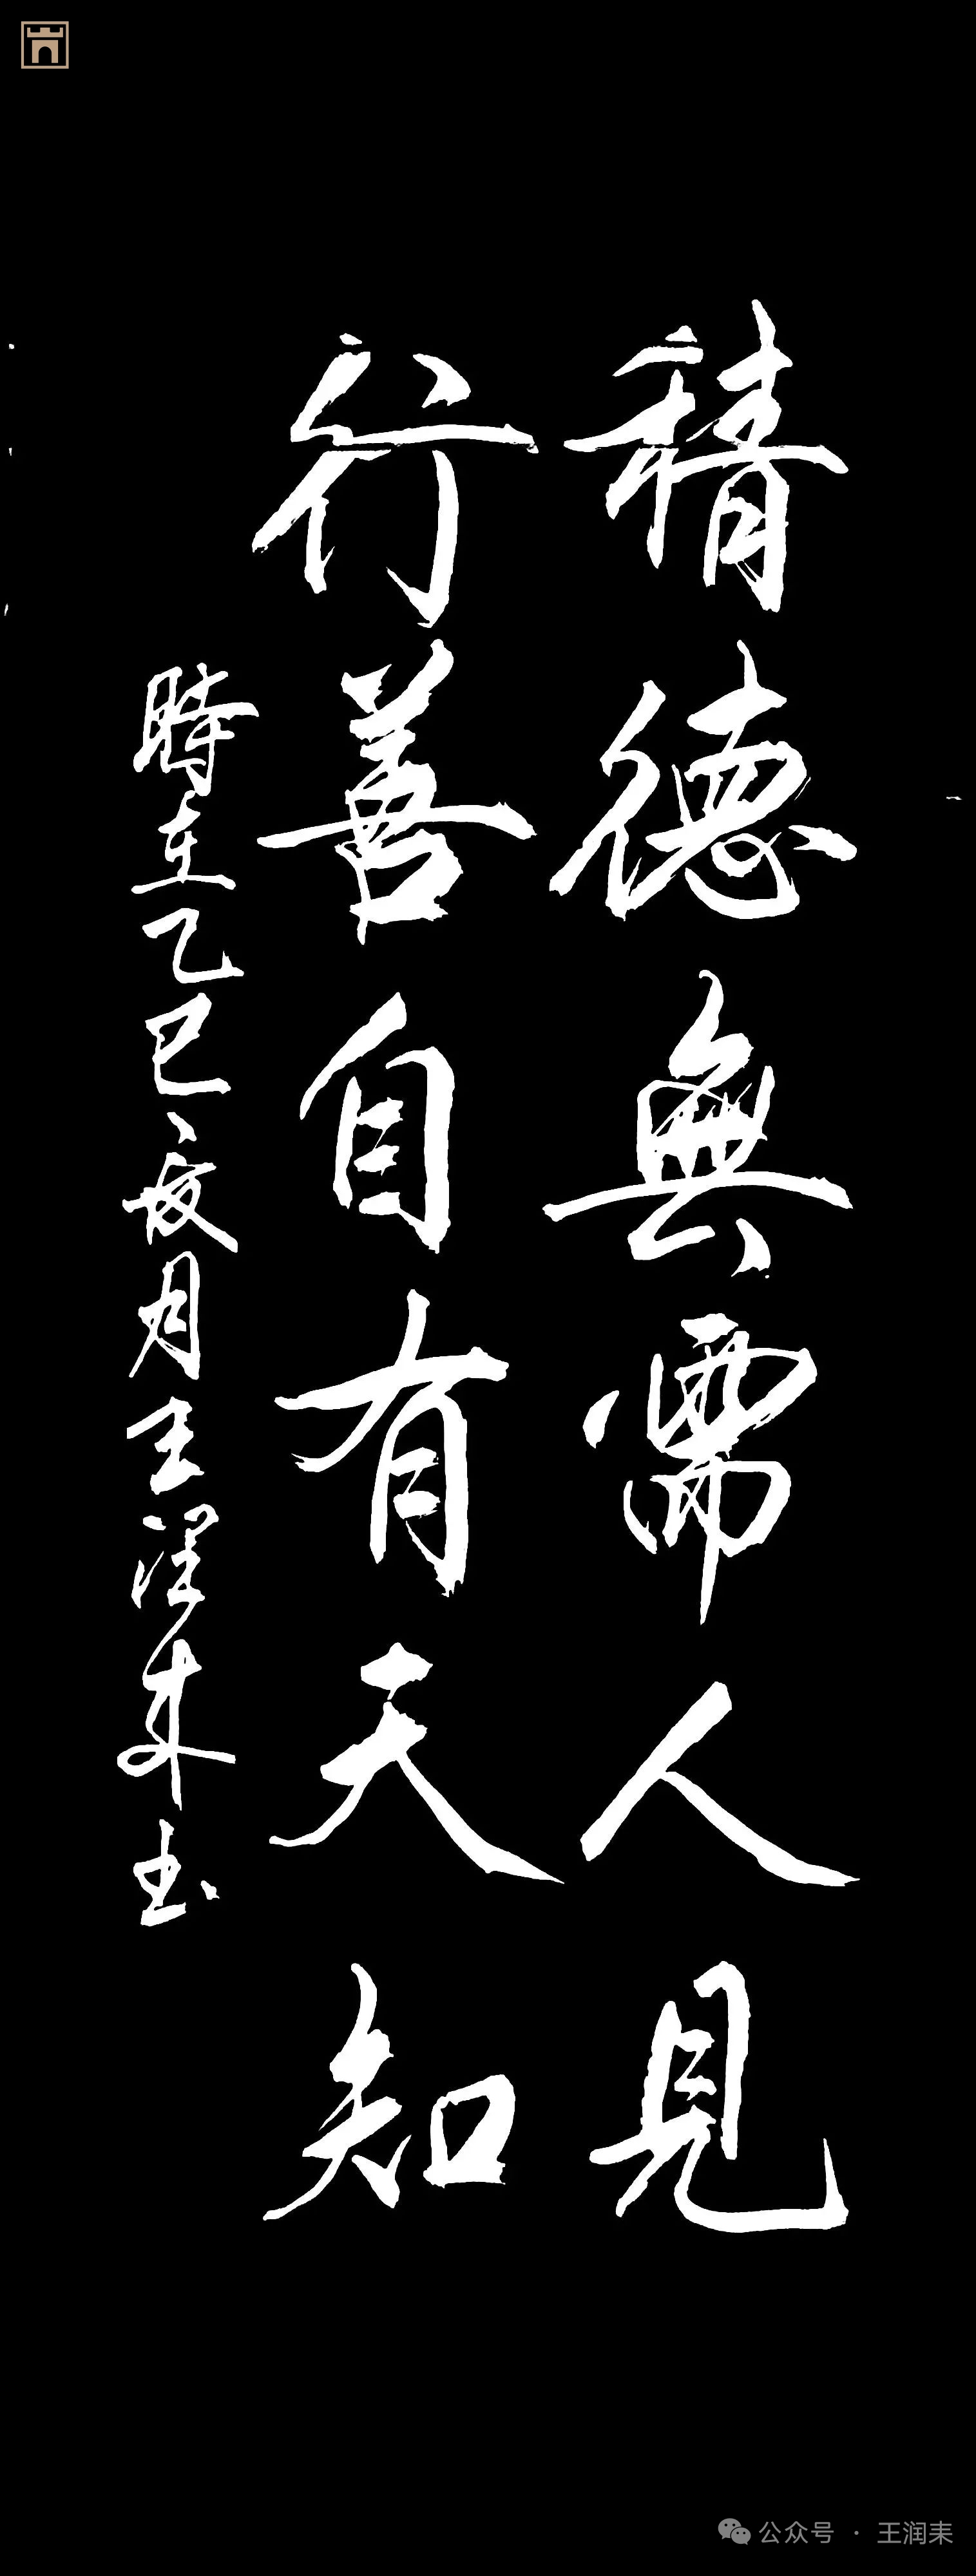 積德無需人見
行善自有天知
時在乙巳月王润耒书
公众号 · 王润耒